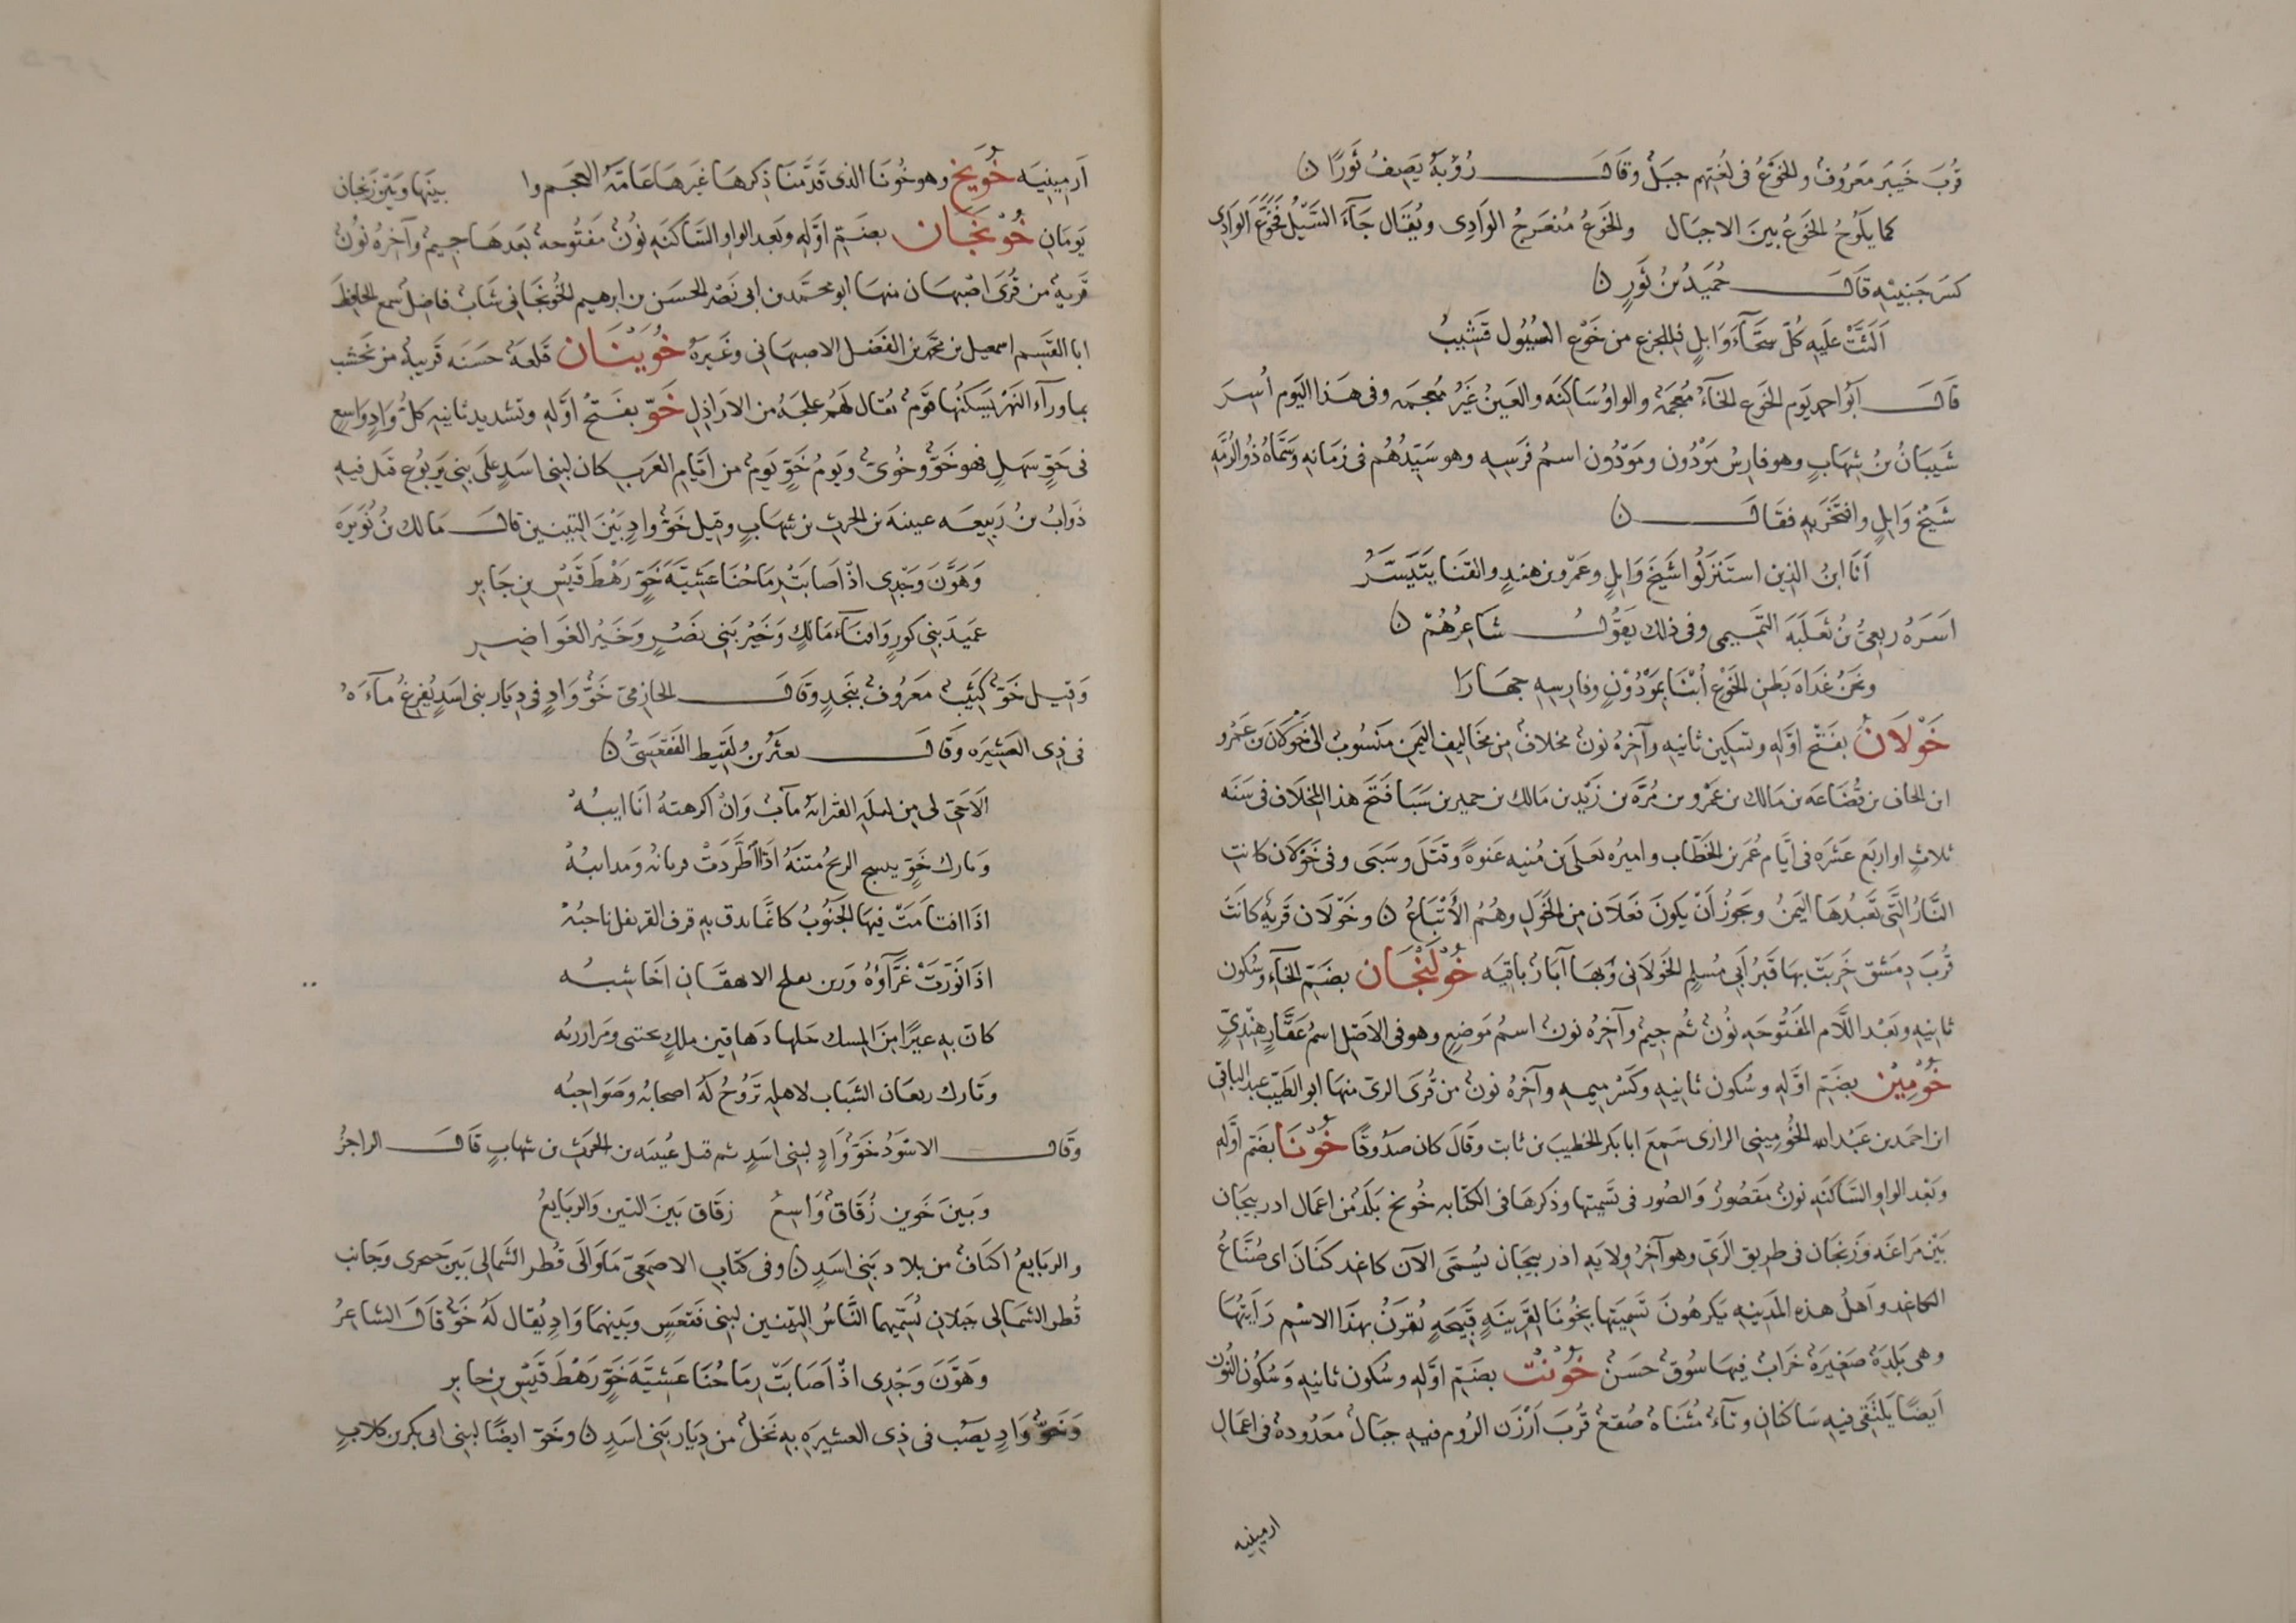 قُربَ خَيبَر مَعرُوفٌ والخَوْعُ فى لُغتِهم جبَلٌ وقَالَ رُؤبَةُ يَصِفُ ثَورًا ن
كما يلَوُحُ الخَوعُ بينَ الاجبَال والخَوعُ مُنعَرجُ الوَادِى ويُقَال جَآءَ السَّيْلُ فَخَوَّعَ الوَادِى
كسَر جَنبيْهِ قَالَ حُمَيدُ بنُ ثَورٍ ن
اَلَثَّتْ عَلَيهِ كُلّ سَحَّآءَ وَابلٍ فللجزع من خَوْع السُيُول قَشَيبُ
قَالَ اَبُو احمد يَوم الخَوع الخَآءُ مُعجَمَة والواوُ سَاكِنَه والعَينُ غَيرُ مُعجَمه وفى هَذا اليَوم أُسِرَ
شَيبَانُ بنُ شِهَابٍ وهو فارِسُ مَوْدُون ومَودُون اسمُ فَرَسِهِ وهو سَيّدُهُم فى زمَانه وسَمَّاهُ ذُو الرُمَّهِ
شَيْخ وَايلٍ وافتَخَر بهِ فقَالَ ن
اَنَا ابنُ الذِين استَنزلُوا شَيخَ وَايلٍ وعَمرو بن هندٍ والقنَا يتَيسَّرُ
اسَرَهُ ربعىُّ بنُ ثعَلَبَهَ التَّمِيمى وفى ذلك يقَوُل شَاعِرُهُمْ ن
ونحنُ غدَاهَ بَطن الخَوْع أُبْنَا بمَوْدُوْنٍ وفارِسِهِ جهَارَا
خَوْلَانُ بفَتْح اوّلِه وتسكِين ثانيهِ وآخرهُ نون مخلافٌ مِن مخَاليفِ اليَمن مَنسُوبٌ الى خَوْلَان بن عَمْرو
ابن الحاف بن قُضَاعَه بن مَالك بن عَمْرو بن مُرَّه بن زَيْد بن مَالك بن حِمير بن سَبَا فَتَحَ هذا المخلَاف فى سَنَه
ثلاثٍ او اربَع عَشَرَه فى ايَّام عُمَر بن الخَطَّاب واميرُه يَعلَى بن مُنيه عَنوهً وقتَلَ وسَبَى وفى خَوْلَان كانت
النَّارُ الّتى تَعبُدهَا اليَمنُ ويجَوزُ اَنْ يكونَ فَعَلَان مِن الخَوَل وهُمُ الأَتْبَاعُ ن وخَوْلَان قَريَه كانَت
قُربَ دِمَشق خَرِبَتْ بهَا قَبرُ اَبى مُسلِم الخَولَانى وَبهَا آثَارٌ باقِيَه خُوْلَنْجَان بضَمّ الخَآءِ وسُكون
ثانِيه وبَعْد اللَّام المَفَتُوحَهِ نُونٌ ثُم جيمٌ وآخِرُه نون اسمُ مَوضِعٍ وهو فى الاَصْل اسمُ عَقَّارٍ هِنْدِيّ
خُوْمِيْن بضَمّ اوّلِهِ وسُكون ثانِيهِ وكَسْر مِيمهِ وآخِرُه نون من قُرَى الرىّ منهَا ابو الطَيّب عبد الباقى
ابن احمد بن عَبْد الله الخُومِينى الرازى سَمِعَ ابا بكر الخطيب بن ثابت وقَالَ كان صَدُوقًا خُوْنَا بضَمّ اوَّلِه
وبَعْد الواو السَّاكنَهِ نونٌ مَقصُورٌ والصُور فى تَسْمِيَتها وذكرهَا فى الكتَابه خُونَج بَلَدٌ من اعمَال اذربيجَان
بَيْن مَرَاغَه وزَنجَان فى طريق الرَيّ وهو آخِرُ وِلايَهِ اذربيجَان يُسَمَّى الآن كاغد كَنَانَ اى صُنَّاعُ
الكاغد واَهلُ هذه المَدَينهِ يَكرهُونَ تَسْمِيَتهَا بخُونَا لقَرِينَهٍ قَبيحَهٍ تُقرَنُ بهَذا الاسْم رَأيتُها
وهى بَلدَه صَغيرَة خَرَابٌ فيهَا سُوقٌ حَسَنٌ خُوْنْت بضَمّ اوّلِه وسُكون ثانِيهِ وَسُكُون النُون
اَيضًا يَلتَقى فِيهِ سَاكنان وتآءٌ مُثنَاة صُقعٌ قُربَ اَرْزَن الرُوم فيهِ جبَالٌ مَعدُودة فى اعمَال
ارمينيه
اَرمينِيَه خُوَنَج وهو خُونَا الذى قَدَّمنَا ذِكرهَا غَيرهَا عَامَّهُ العجَم وا بينَهَا وبَيْن زَنجَان
يَومَانِ خُوْنَجَان بضَمّ اوَّلهِ وبَعد الواو السَّاكنَهِ نُونٌ مفَتُوحهٌ بَعدهَا جيمٌ وآخِرُه نُونٌ
قَريهٌ من قُرَى اصْبهَان منهَا ابو محمَّد بن ابى نَصْر الحسَن بن ابرهيم الخُونجَانى شَابٌ فاضِلٌ سمع الحَافِظَ
ابا القَسِم اسمعيل بن محَمَّد بن الفَضل الاصبهَانى وغَيرَه خُوَيْنَان قَلعَهٌ حَسَنَه قَريبهٌ من نَخشَب
بما ورآء النَّهر يَسكُنُها قَومٌ يُقال لَهُم علجهُ من الارَاذِل خَوّ بفَتحُ اوَّلهِ وتشديد ثانيهِ كلُّ وَادٍ وَاسعٍ
فى جَوّ سَهلٍ فهو خَوٌّ وخُوىٌّ ويَومُ خَوٍّ يَومٌ من أيَّام العَرَبِ كان لبنى اسَدٍ عَلَى بنى يَربُوع قتل فيهِ
ذوَابُ بنُ رَبيعَه عيينهَ بن الحرث بن شهَابٍ وقيل خَوٌّ وادٍ بَيْنَ التِينين قالَ مَالك بنُ نُوَيرَه
وَهَوَّنَ وَجْدِى اذْ اَصَابَتْ رِمَاحُنَا عَشِيَّهَ خَوٍّ رَهْطَ قَيْسِ بنِ جَابِرِ
عَمِيدَ بَنِى كُورٍ وَافنَآءَ مَالِكٍ وَخَيْرَ بَنى نَصْرٍ وَخَيْرُ الغَوَاضِرِ
وَقيل خَوّ كثَيبٌ مَعرُوفٌ بنَجدٍ وقَالَ الحَازِمىّ خَوٌّ وَادٍ فى دِيَار بنى اسَدٍ يُفرغُ مآءَه
فى ذِى العَشِيرَه وَقَالَ بن لَقِيط الفَقعَسىُّ ن
اَلَا حَىّ لى مِن ليلَهِ مآبٌ وَانْ اكرهتهُ اَنَا ايبُهْ
وتارك خَوٍّ ينسج الريحُ مَتنَهُ اذَا اطَّرَدَتْ ومَدَانِبُهْ
اذَا افتاَمَتْ فِيهَا الجَنوُبُ كانَّمَا يدق بهِ قرف القرنفل ناجبُهْ
اذَا نَوّرَتْ غَرَّآؤهُ الايهقَانِ اَخَاشِبُه
كانَ بهِ عيرًا مِنَ المِسك حَلها دَهَاقينَ ملكٍ
وتَارك ربعَان الشبَاب لاهلِهِ تَرُوحُ لَهُ اصحابُه وصَوَاحِبُه
وقَالَ الاسْوَدُ خَوٌّ وَادٍ لبنى اسَدٍ ثم قتل عُيينَه بن الحَرث بن شهابٍ قَالَ الراجزُ
وبَينَ خَوين زُقَاقٌ وَاسِعٌ زقَاق بَينَ التين وَالربَايعُ
والربَايعُ اكنَافٌ من بلاد بَنِى اسَدٍ ن وفى كتَابِ الاصمَعِىّ مَا وَالَى قُطر الشَّمالى بَين حبحرى وجَانب
قُطر الشمَالى جبَلانِ تُسَمّيهما النَّاسُ التِينَين لبَنى فَقعَسٍ وبَينهمَا وَادٍ يُقال لَهُ خَوٌّ قَالَ الشاعرُ
وَهَوَّنَ وَجْدِى اذْ اَصَابَتْ رِمَاحُنَا عَشِيَّهَ خَوٍّ رَهْطَ قَيْسِ بنِ جَابِرِ
وَخَوٌّ وَادٍ يصَبّ فى ذِى العشيرَهِ بهِ نَخلٌ من دِيَار بَنى اسَدٍ ن وخَوّ ايضًا لبنى ابى بكر بن كلابٍ